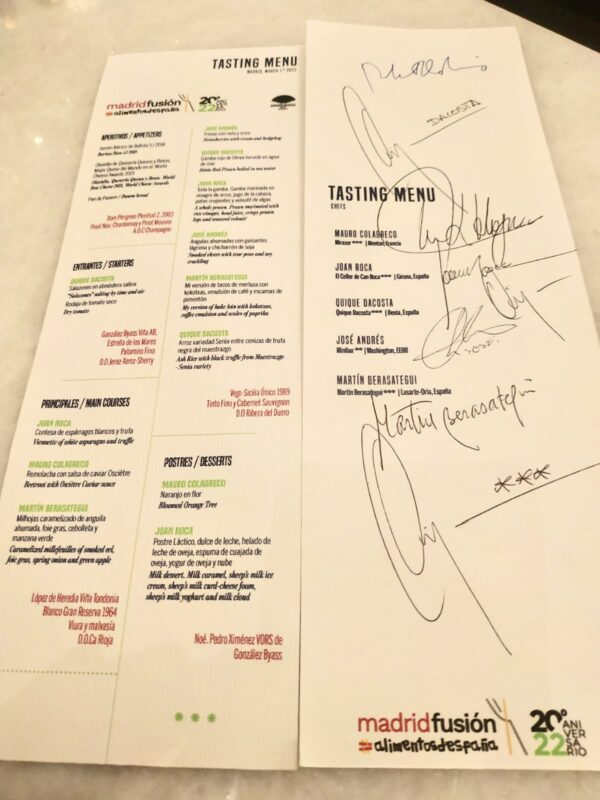 TASTING MENU
MADRID, MARCH 1ST 2022
madridfusión
#alimentosdespaña
20º
22
ANI
VER
SA
RIO
APERITIVOS / APPETIZERS
Jamón Ibérico de Bellota 5J 2018
Iberian Ham 5J 2018
Olavidia de Quesería Quesos y Besos,
Mejor Queso del Mundo en el World
Cheese Awards 2021
Olavidia, Quesería Quesos y Besos. World
Best Cheese 2021. World Cheese Awards
Pan de Panem / Panem bread
Dom Pérignon Plenitud 2, 2003
Pinot Noir, Chardonnay y Pinot Meunier
A.O.C Champagne
ENTRANTES / STARTERS
QUIQUE DACOSTA
Salazones en atmósfera salina
"Salazones" salting by time and air
Rodaja de tomate seco
Dry tomato
González Byass Viña AB,
Estrella de los Mares
Palomino Fino
D.O Jerez-Xerez-Sherry
PRINCIPALES / MAIN COURSES
JOAN ROCA
Contesa de espárragos blancos y trufa
Viennette of white asparagus and truffle
MAURO COLAGRECO
Remolacha con salsa de caviar Osciètre
Beetroot with Osciètre Caviar sauce
MARTÍN BERASATEGUI
Milhojas caramelizado de anguila
ahumada, foie gras, cebolleta y
manzana verde
Caramelized millefeuilles of smoked eel,
foie gras, spring onion and green apple
López de Heredia Viña Tondonia
Blanco Gran Reserva 1964
Viura y malvasía
D.O.Ca Rioja
JOSÉ ANDRÉS
Fresas con nata y erizo
Strawberries with cream and hedgehog
QUIQUE DACOSTA
Gamba roja de Dénia hervida en agua
de mar
Dénia Red Prawn boiled in sea water
JOAN ROCA
Toda la gamba. Gamba marinada en
vinagre de arroz, jugo de la cabeza,
patas crujientes y velouté de algas
A whole prawn. Prawn marinated with
rice vinegar, head juice, crispy prawn
legs and seaweed velouté
JOSÉ ANDRÉS
Angulas ahumadas con guisantes
lágrima y chicharrón de soja
Smoked elvers with tear peas and soy
crackling
MARTÍN BERASATEGUI
Mi versión de tacos de merluza con
kokotxas, emulsión de café y escamas de
pimentón
My version of hake loin with kokotxas,
coffee emulsion and scales of paprika
QUIQUE DACOSTA
Arroz variedad Senia entre cenizas de trufa
negra del maestrazgo
Ash Rice with black truffle from Maestrazgo
- Senia variety
Vega-Sicilia Único 1989
Tinto Fino y Cabernet Sauvignon
D.O Ribera del Duero
POSTRES / DESSERTS
MAURO COLAGRECO
Naranjo en flor
Bloomed Orange Tree
JOAN ROCA
Postre Láctico, dulce de leche, helado de
leche de oveja, espuma de cuajada de
oveja, yogur de oveja y nube
Milk dessert. Milk caramel, sheep's milk ice
cream, sheep's milk curd-cheese foam,
sheep's milk yoghurt and milk cloud
Noé. Pedro Ximénez VORS de
González Byass
***
DACOSTA
TASTING MENU
CHEFS
MAURO COLAGRECO
Mirazur *** | Menton, Francia
JOAN ROCA
El Celler de Can Roca *** | Girona, España
QUIQUE DACOSTA
Quique Dacosta *** | Denia, España
JOSÉ ANDRÉS
Minibar ** | Washington, EEUU
MARTÍN BERASATEGUI
Martín Berasategui *** | Lasarte-Oria, España
Martín Berasategui
***
madridfusión
#alimentosdespaña
20º
22
ANI
VER
SA
RIO